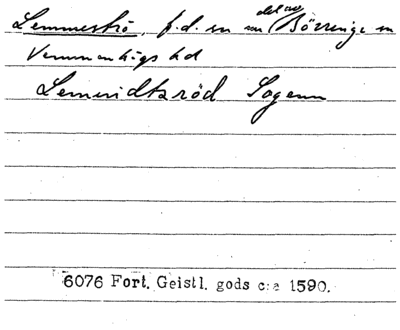 Lemmeströ, f.d. sn nu del av Börringe sn
Vemmenhögs hd
Lemuidtzröd Sogenn
6076 Fort. Geistl. gods c:a 1590.